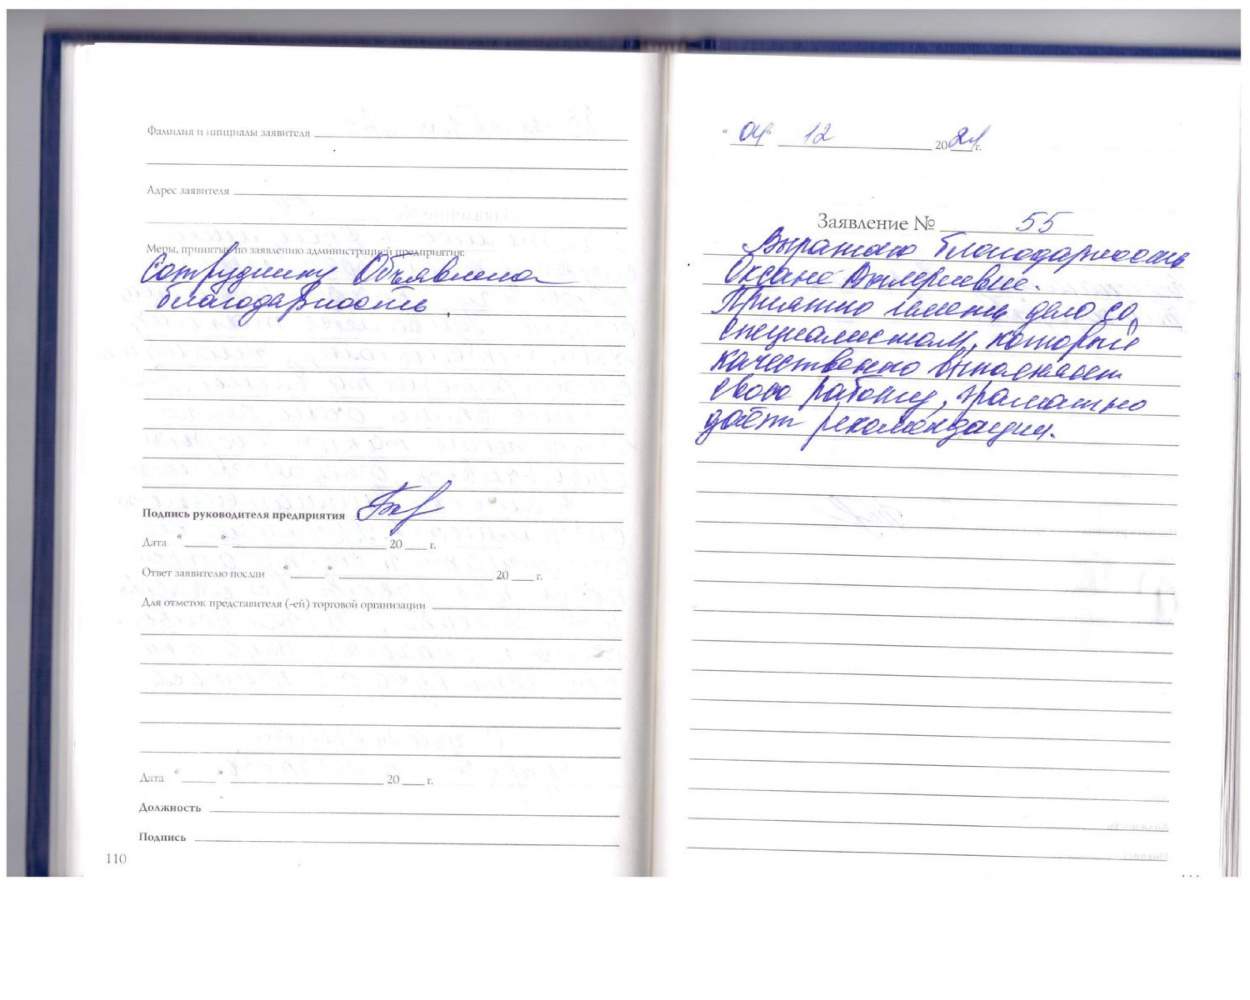 Фамилия и инициалы заявителя
Адрес заявителя
Меры, принятые по заявлению администрацией предприятия:
Сотруднику Объявлена
благодарность
Подпись руководителя предприятия
Дата " " 20 г.
Ответ заявителю послан " " 20 г.
Для отметок представителя (-ей) торговой организации
Дата " " 20 г.
Должность
Подпись
110
"04" 12 2021 г.
Заявление № 55
Выражаю благодарность
Оксане
Приятно иметь дело со
специалистом, который
качественно выполняет
свою работу, грамотно
даёт рекомендации.